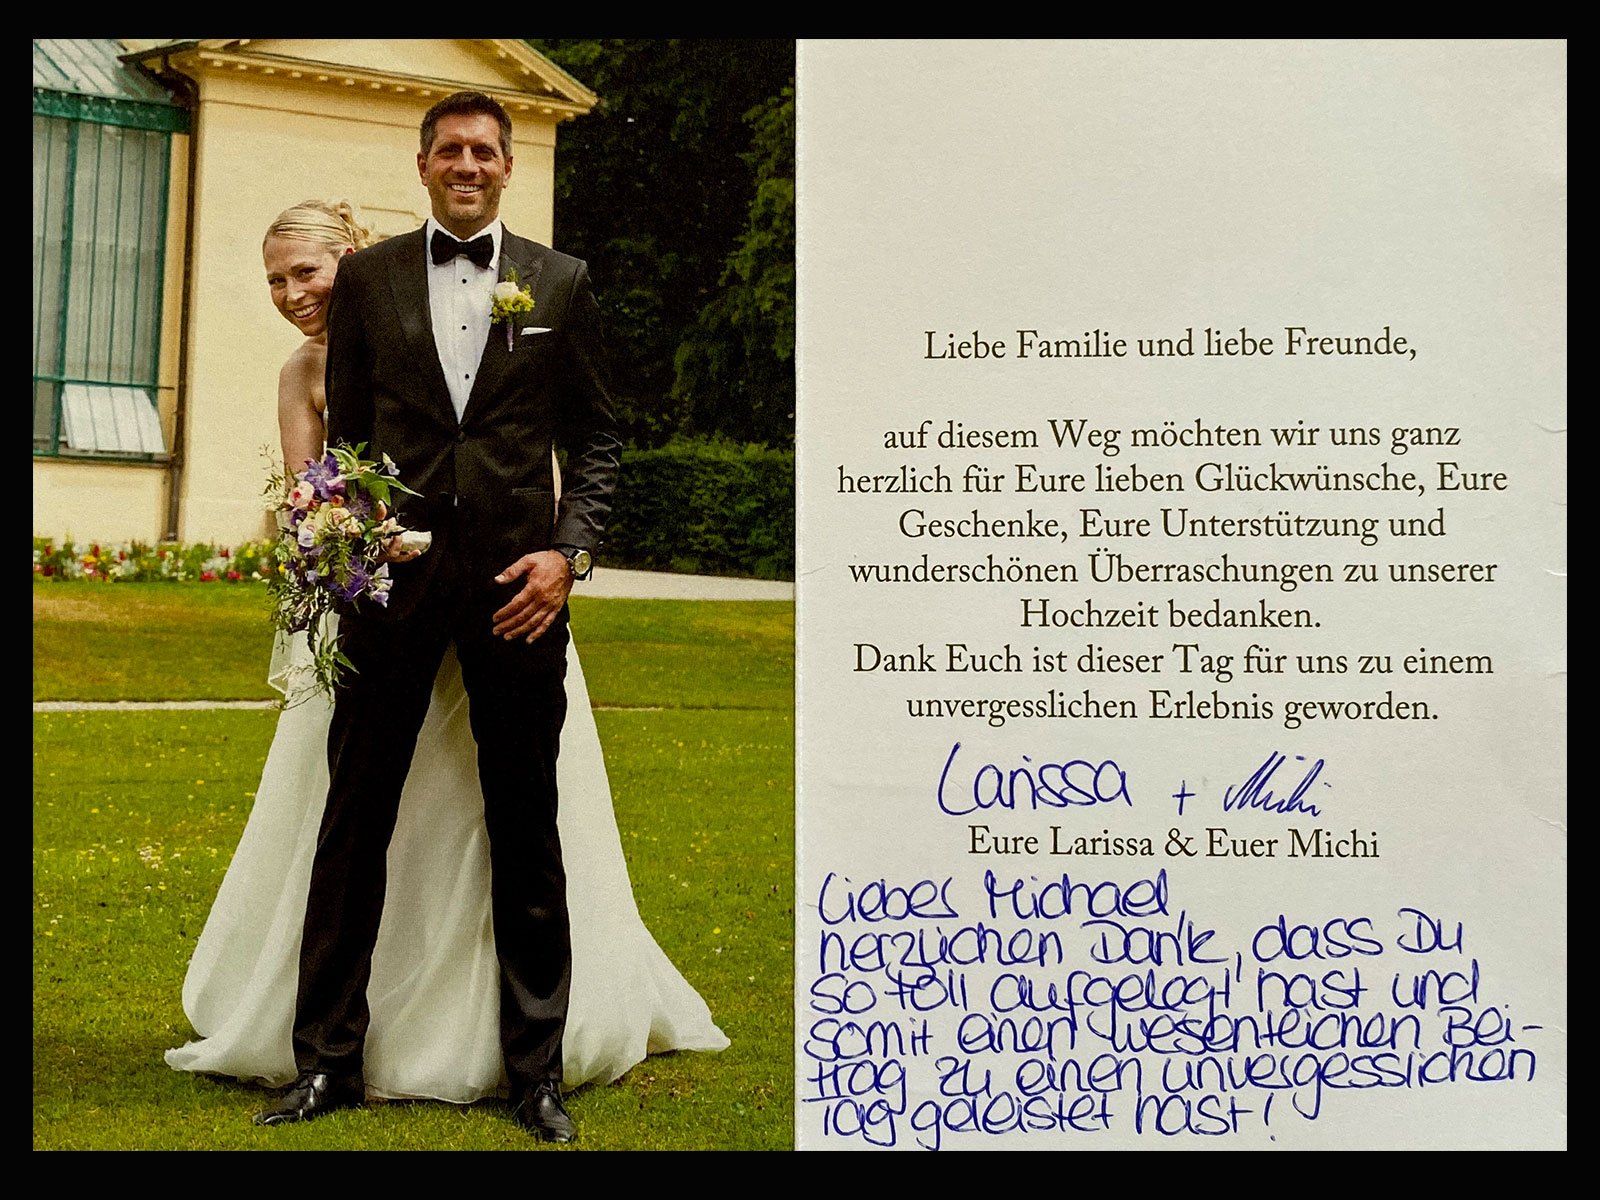 Liebe Familie und liebe Freunde,
auf diesem Weg möchten wir uns ganz
herzlich für Eure lieben Glückwünsche, Eure
Geschenke, Eure Unterstützung und
wunderschönen Überraschungen zu unserer
Hochzeit bedanken.
Dank Euch ist dieser Tag für uns zu einem
unvergesslichen Erlebnis geworden.
Larissa + Michi
Eure Larissa & Euer Michi
Lieber Michael,
herzlichen Dank, dass Du
so toll aufgelegt hast und
somit einen wesentlichen Bei-
trag zu einen unvergesslichen
Tag geleistet hast!